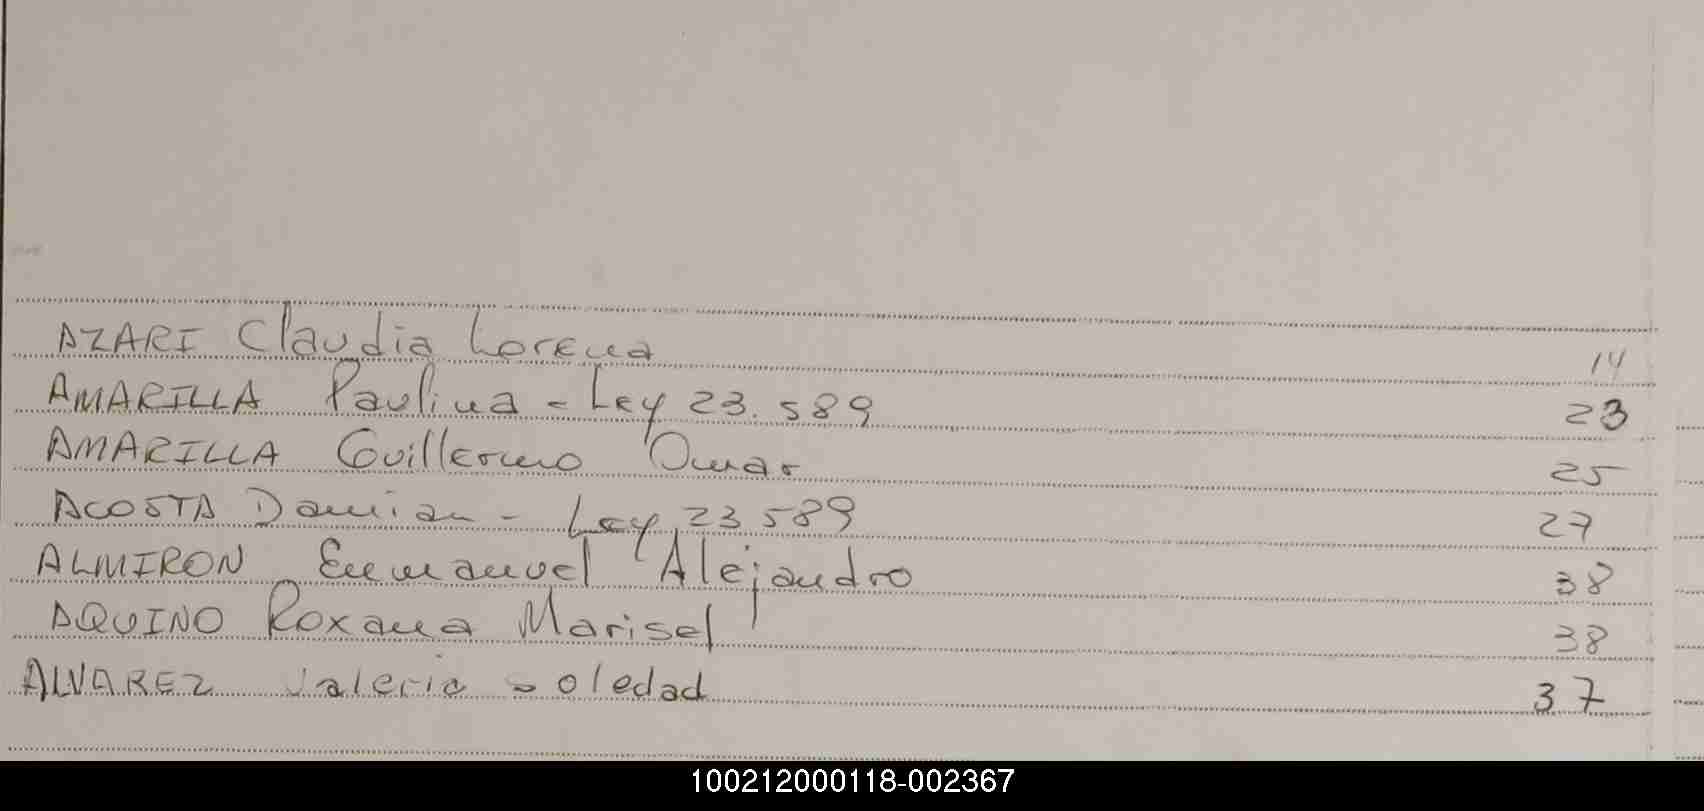 AZARI Claudia Lorena 14
AMARILLA Paulina - Ley 23.589 23
AMARILLA Guillermo Omar 25
ACOSTA Damian - Ley 23589 27
ALMIRON Emmanuel Alejandro 38
AQUINO Roxana Marisel 38
ALVAREZ Valeria Soledad 37
100212000118-002367